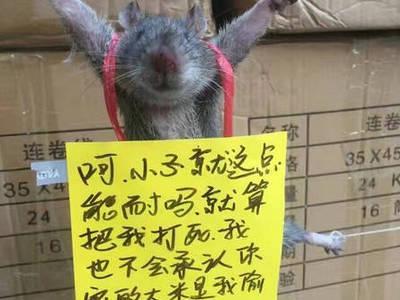 连卷袋
35X45
24
16
名称
连卷
35X45
24 K
16
呵.小子就这点
能耐吗.就算
把我打死.我
也不会承认你
家的大米是我偷